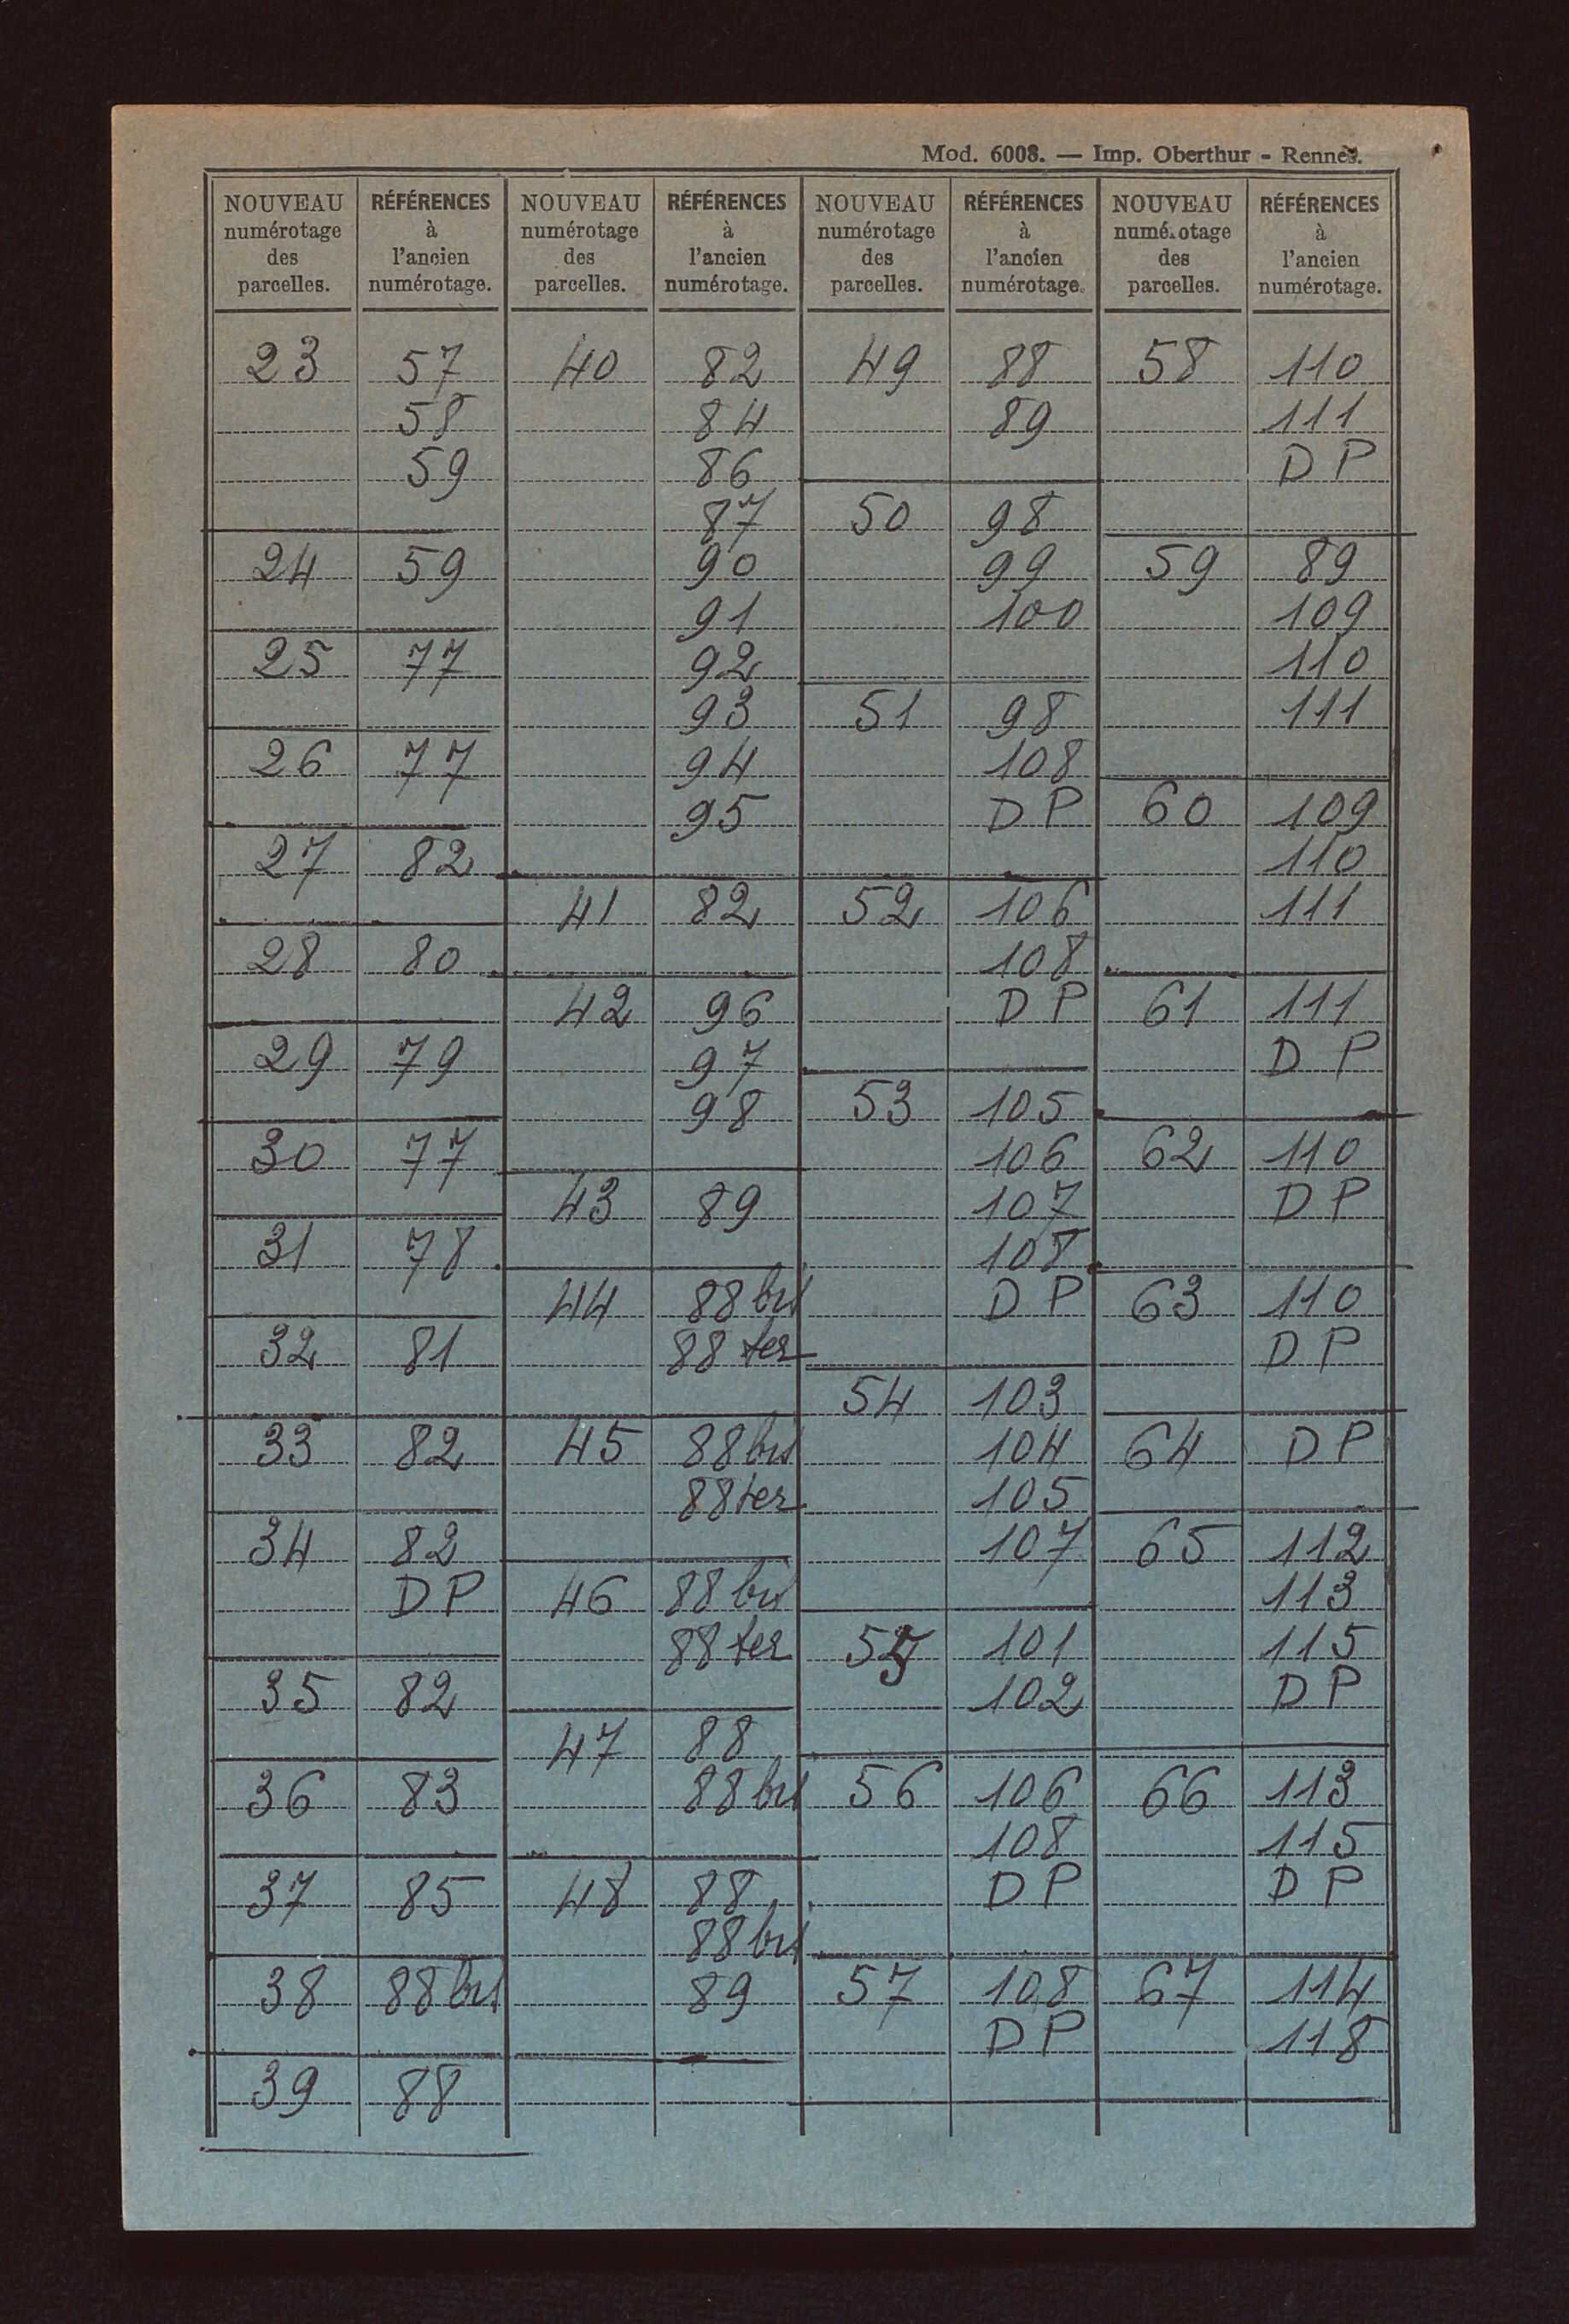 Mod. 6008. — Imp. Oberthur - Rennes.
NOUVEAU
numérotage
des
parcelles.
RÉFÉRENCES
à
l'ancien
numérotage.
23 57
58
59
24 59
25 77
26 77
27 82
28 80
29 79
30 77
31 78
32 81
33 82
34 82
DP
35 82
36 83
37 85
38 88 bis
39 88
NOUVEAU
numérotage
des
parcelles.
RÉFÉRENCES
à
l'ancien
numérotage.
40 82
84
86
87
90
91
92
93
94
95
41 82
42 96
97
98
43 89
44 88 bis
88 ter
45 88 bis
88 ter
46 88 bis
88 ter
47 88
88 bis
48 88
88 bis
89
NOUVEAU
numérotage
des
parcelles.
RÉFÉRENCES
à
l'ancien
numérotage.
49 88
89
50 98
99
100
51 98
108
DP
52 106
108
DP
53 105
106
107
108
DP
54 103
104
105
107
55 101
102
56 106
108
DP
57 108
DP
NOUVEAU
numérotage
des
parcelles.
RÉFÉRENCES
à
l'ancien
numérotage.
58 110
111
DP
59 89
109
110
111
60 109
110
111
61 111
DP
62 110
DP
63 110
DP
64 DP
65 112
113
115
DP
66 113
115
DP
67 114
118